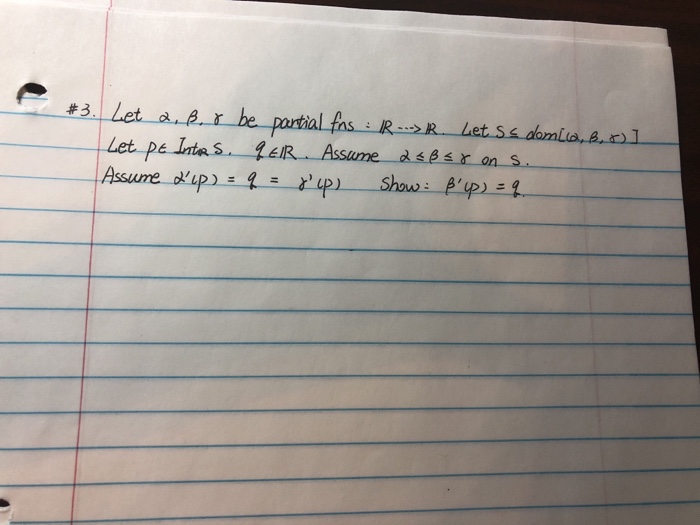 #3. Let α, β, γ be partial fns : ℝ ---> ℝ. Let S ≤ dom[(α, β, γ)]
Let p ∈ Intℝ S. q ∈ ℝ. Assume α ≤ β ≤ γ on S.
Assume α'(p) = q = γ'(p) Show: β'(p) = q.